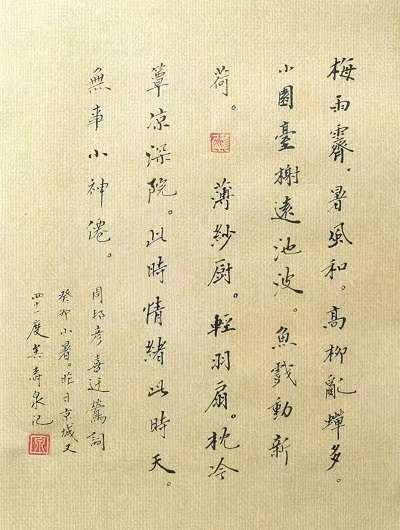 梅雨霽．暑風和。高柳亂蟬多。
小園臺榭遠池波。魚戲動新
荷。 薄紗厨。輕羽扇。枕冷
簟凉深院。此時情緒此時天。
無事小神僊。
周邦彥喜遷鶯詞
癸卯小暑。昨日京城又
四十一度 壽泉记